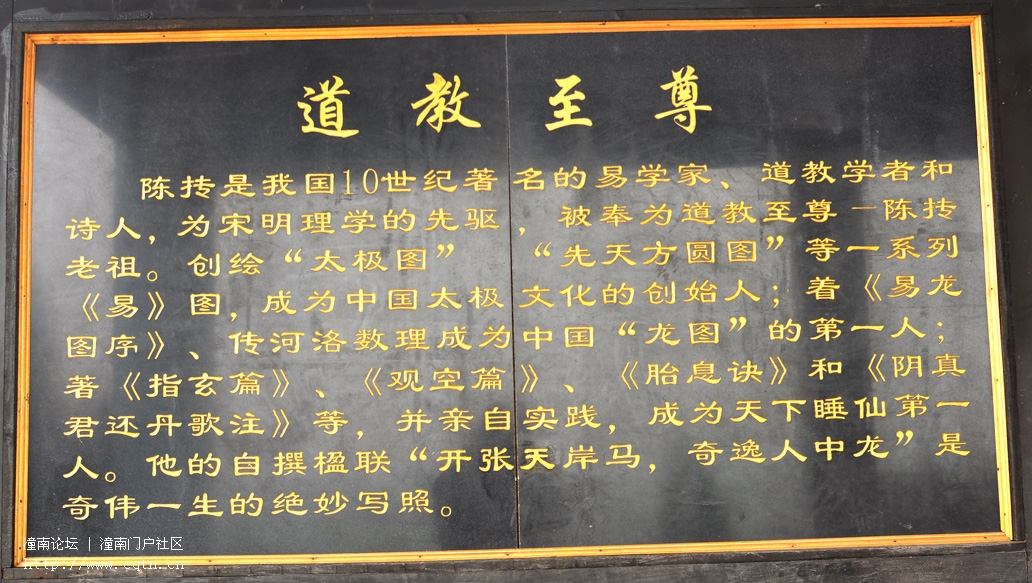 道教至尊
陈抟是我国10世纪著名的易学家、道教学者和
诗人，为宋明理学的先驱，被奉为道教至尊－陈抟
老祖。创绘“太极图”“先天方圆图”等一系列
《易》图，成为中国太极文化的创始人；着《易龙
图序》、传河洛数理成为中国“龙图”的第一人；
著《指玄篇》、《观空篇》、《胎息诀》和《阴真
君还丹歌注》等，并亲自实践，成为天下睡仙第一
人。他的自撰楹联“开张天岸马，奇逸人中龙”是
奇伟一生的绝妙写照。
潼南论坛 | 潼南门户社区
http://www.cqtn.cn